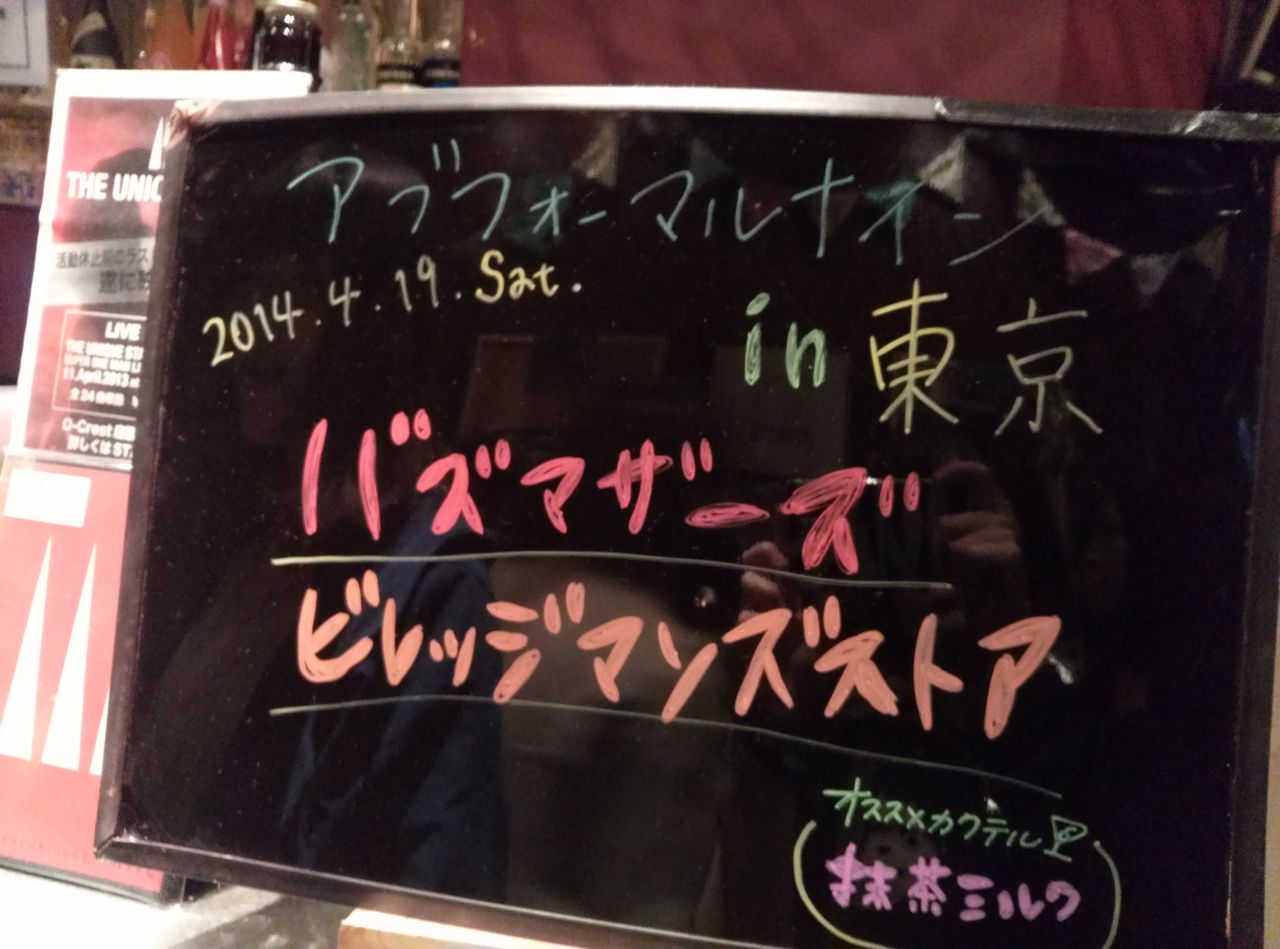 アブフォーマルナイーン
2014.4.19.Sat.
in 東京
バズマザーズ
ビレッジマンズストア
オススメカクテル
抹茶ミルク
THE UNIQ
活動休止前のラス
LIVE
THE UNIQUE STA
11.April.2013 at
全24曲収録
O-Crest
詳しくは ST.